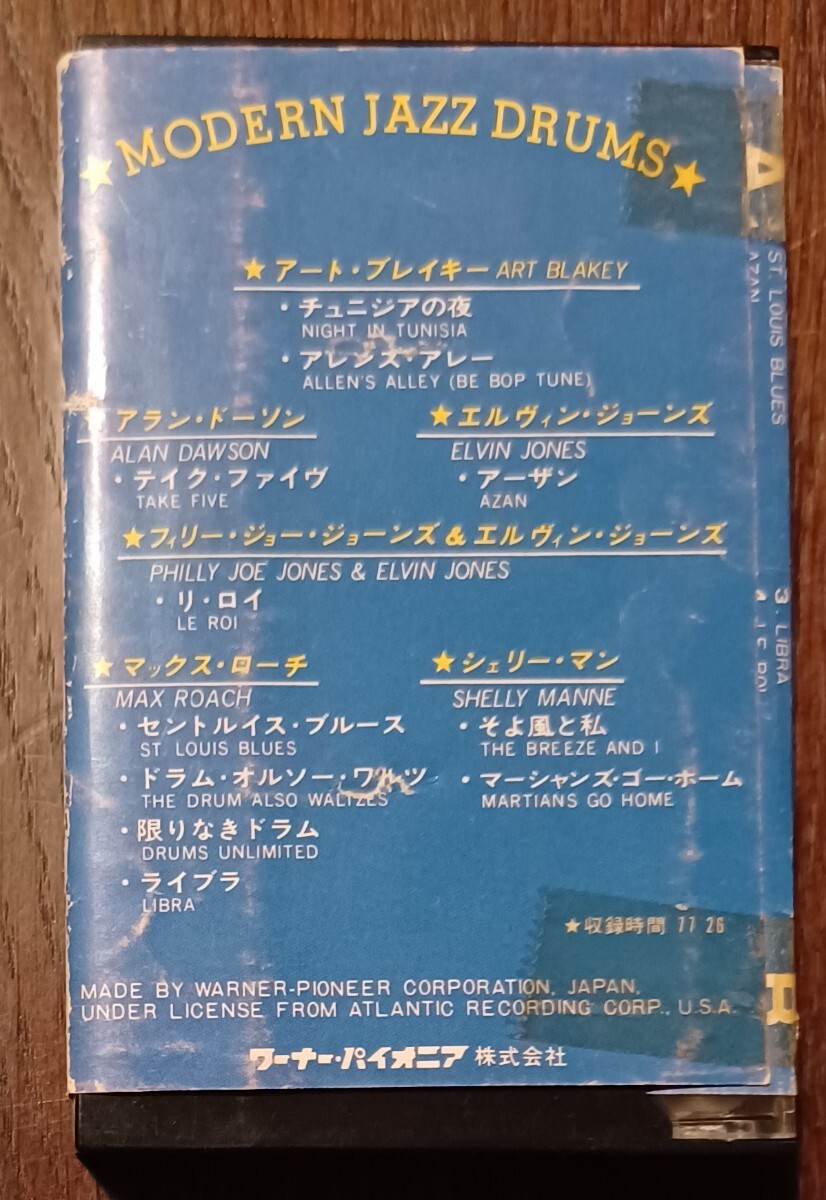 ★MODERN JAZZ DRUMS★
★アート・ブレイキー ART BLAKEY
・チュニジアの夜
NIGHT IN TUNISIA
・アレンズ・アレー
ALLEN'S ALLEY (BE BOP TUNE)
アラン・ドーソン
ALAN DAWSON
・テイク・ファイヴ
TAKE FIVE
★エルヴィン・ジョーンズ
ELVIN JONES
・アーザン
AZAN
★フィリー・ジョー・ジョーンズ & エルヴィン・ジョーンズ
PHILLY JOE JONES & ELVIN JONES
・リ・ロイ
LE ROI
★マックス・ローチ
MAX ROACH
・セントルイス・ブルース
ST. LOUIS BLUES
・ドラム・オルソー・ワルツ
THE DRUM ALSO WALTZES
・限りなきドラム
DRUMS UNLIMITED
・ライブラ
LIBRA
★シェリー・マン
SHELLY MANNE
・そよ風と私
THE BREEZE AND I
・マーシャンズ・ゴー・ホーム
MARTIANS GO HOME
★収録時間 77 26
MADE BY WARNER-PIONEER CORPORATION, JAPAN,
UNDER LICENSE FROM ATLANTIC RECORDING CORP., U.S.A.
ワーナー・パイオニア株式会社
ST. LOUIS BLUES
AZAN
3. LIBRA